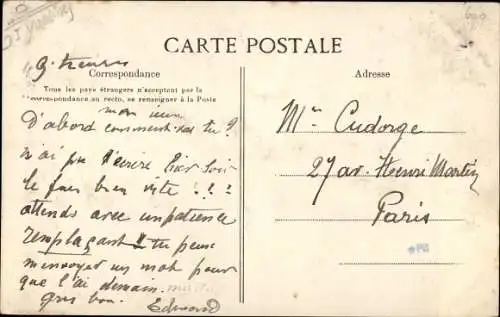 CARTE POSTALE
9 heures
Correspondance
Tous les pays étrangers n'acceptent pas la
correspondance au recto, se renseigner à la Poste
mon
D'abord comment vas tu?
n'ai pu t'écrire hier soir
le faire bien vite!!?
attends avec impatience
remplaçant tu peux
m'envoyer un mot pour
que l'ai demain.
gros bon.
Edouard
Adresse
Mr Cudorge
27 av. Henri Martin
Paris